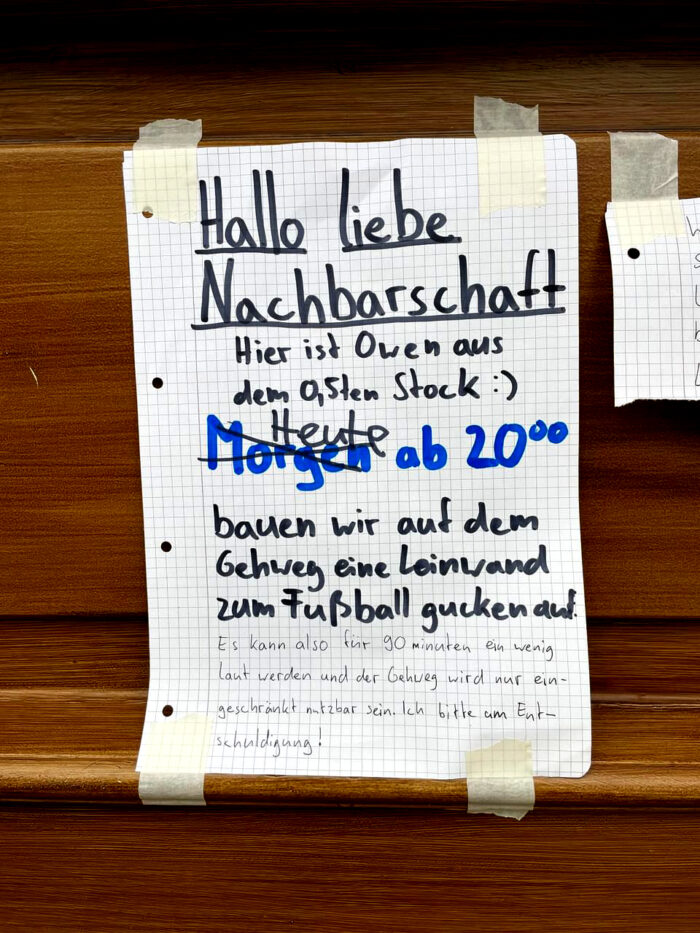 Hallo liebe
Nachbarschaft
Hier ist Owen aus
dem 0,5ten Stock :)
Heute
Morgen ab 20⁰⁰
bauen wir auf dem
Gehweg eine Leinwand
zum Fußball gucken auf.
Es kann also für 90 minuten ein wenig
laut werden und der Gehweg wird nur ein-
geschränkt nutzbar sein. Ich bitte um Ent-
schuldigung!